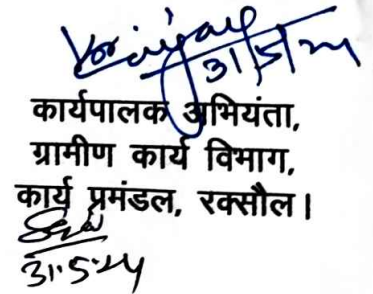 31/5/24
कार्यपालक अभियंता,
ग्रामीण कार्य विभाग,
कार्य प्रमंडल, रक्सौल।
31.5.24